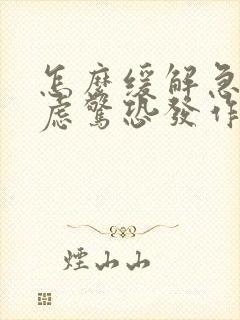 怎麼緩解急
慮驚恐發作
煙山山